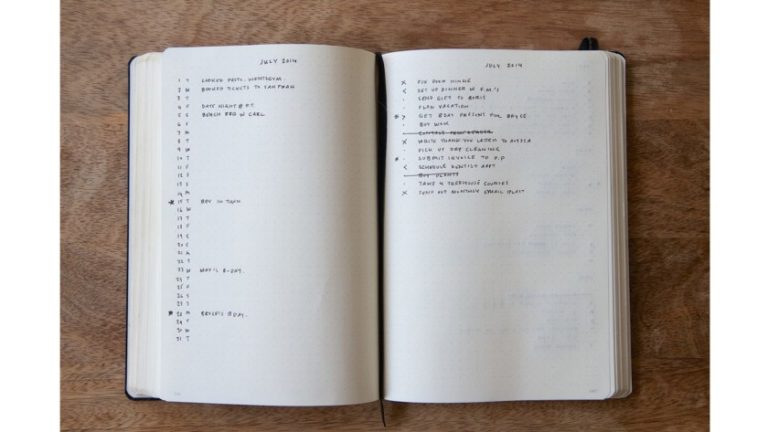 JULY 2014
1 T
2 W BOOKED TICKETS TO SAN FRAN
3 T
4 F DATE NIGHT @ P.T.
5 S BEACH BBQ W CARL
6 S
7 M
8 T
9 W
10 T
11 F
12 S
13 S
14 M
15 T BEV IN TOWN
16 W
17 T
18 F
19 S
20 S
21 M
22 T
23 W B-DAY.
24 T
25 F
26 S
27 S
28 M BDAY.
29 T
30 W
31 T
JULY 2014
X
< SET UP DINNER W F.M.'S
· SEND GIFT TO BORIS
· PLAN VACATION
* > GET BDAY PRESENT FOR
· BUY WOK
X WRITE THANK YOU LETTER TO
· PICK UP DRY CLEANING
* · SUBMIT INVOICE TO P.P
< SCHEDULE DENTIST APPT
· TAKE 4 TREEHOUSE COURSES
X SEND OUT MONTHLY EMAIL BLAST